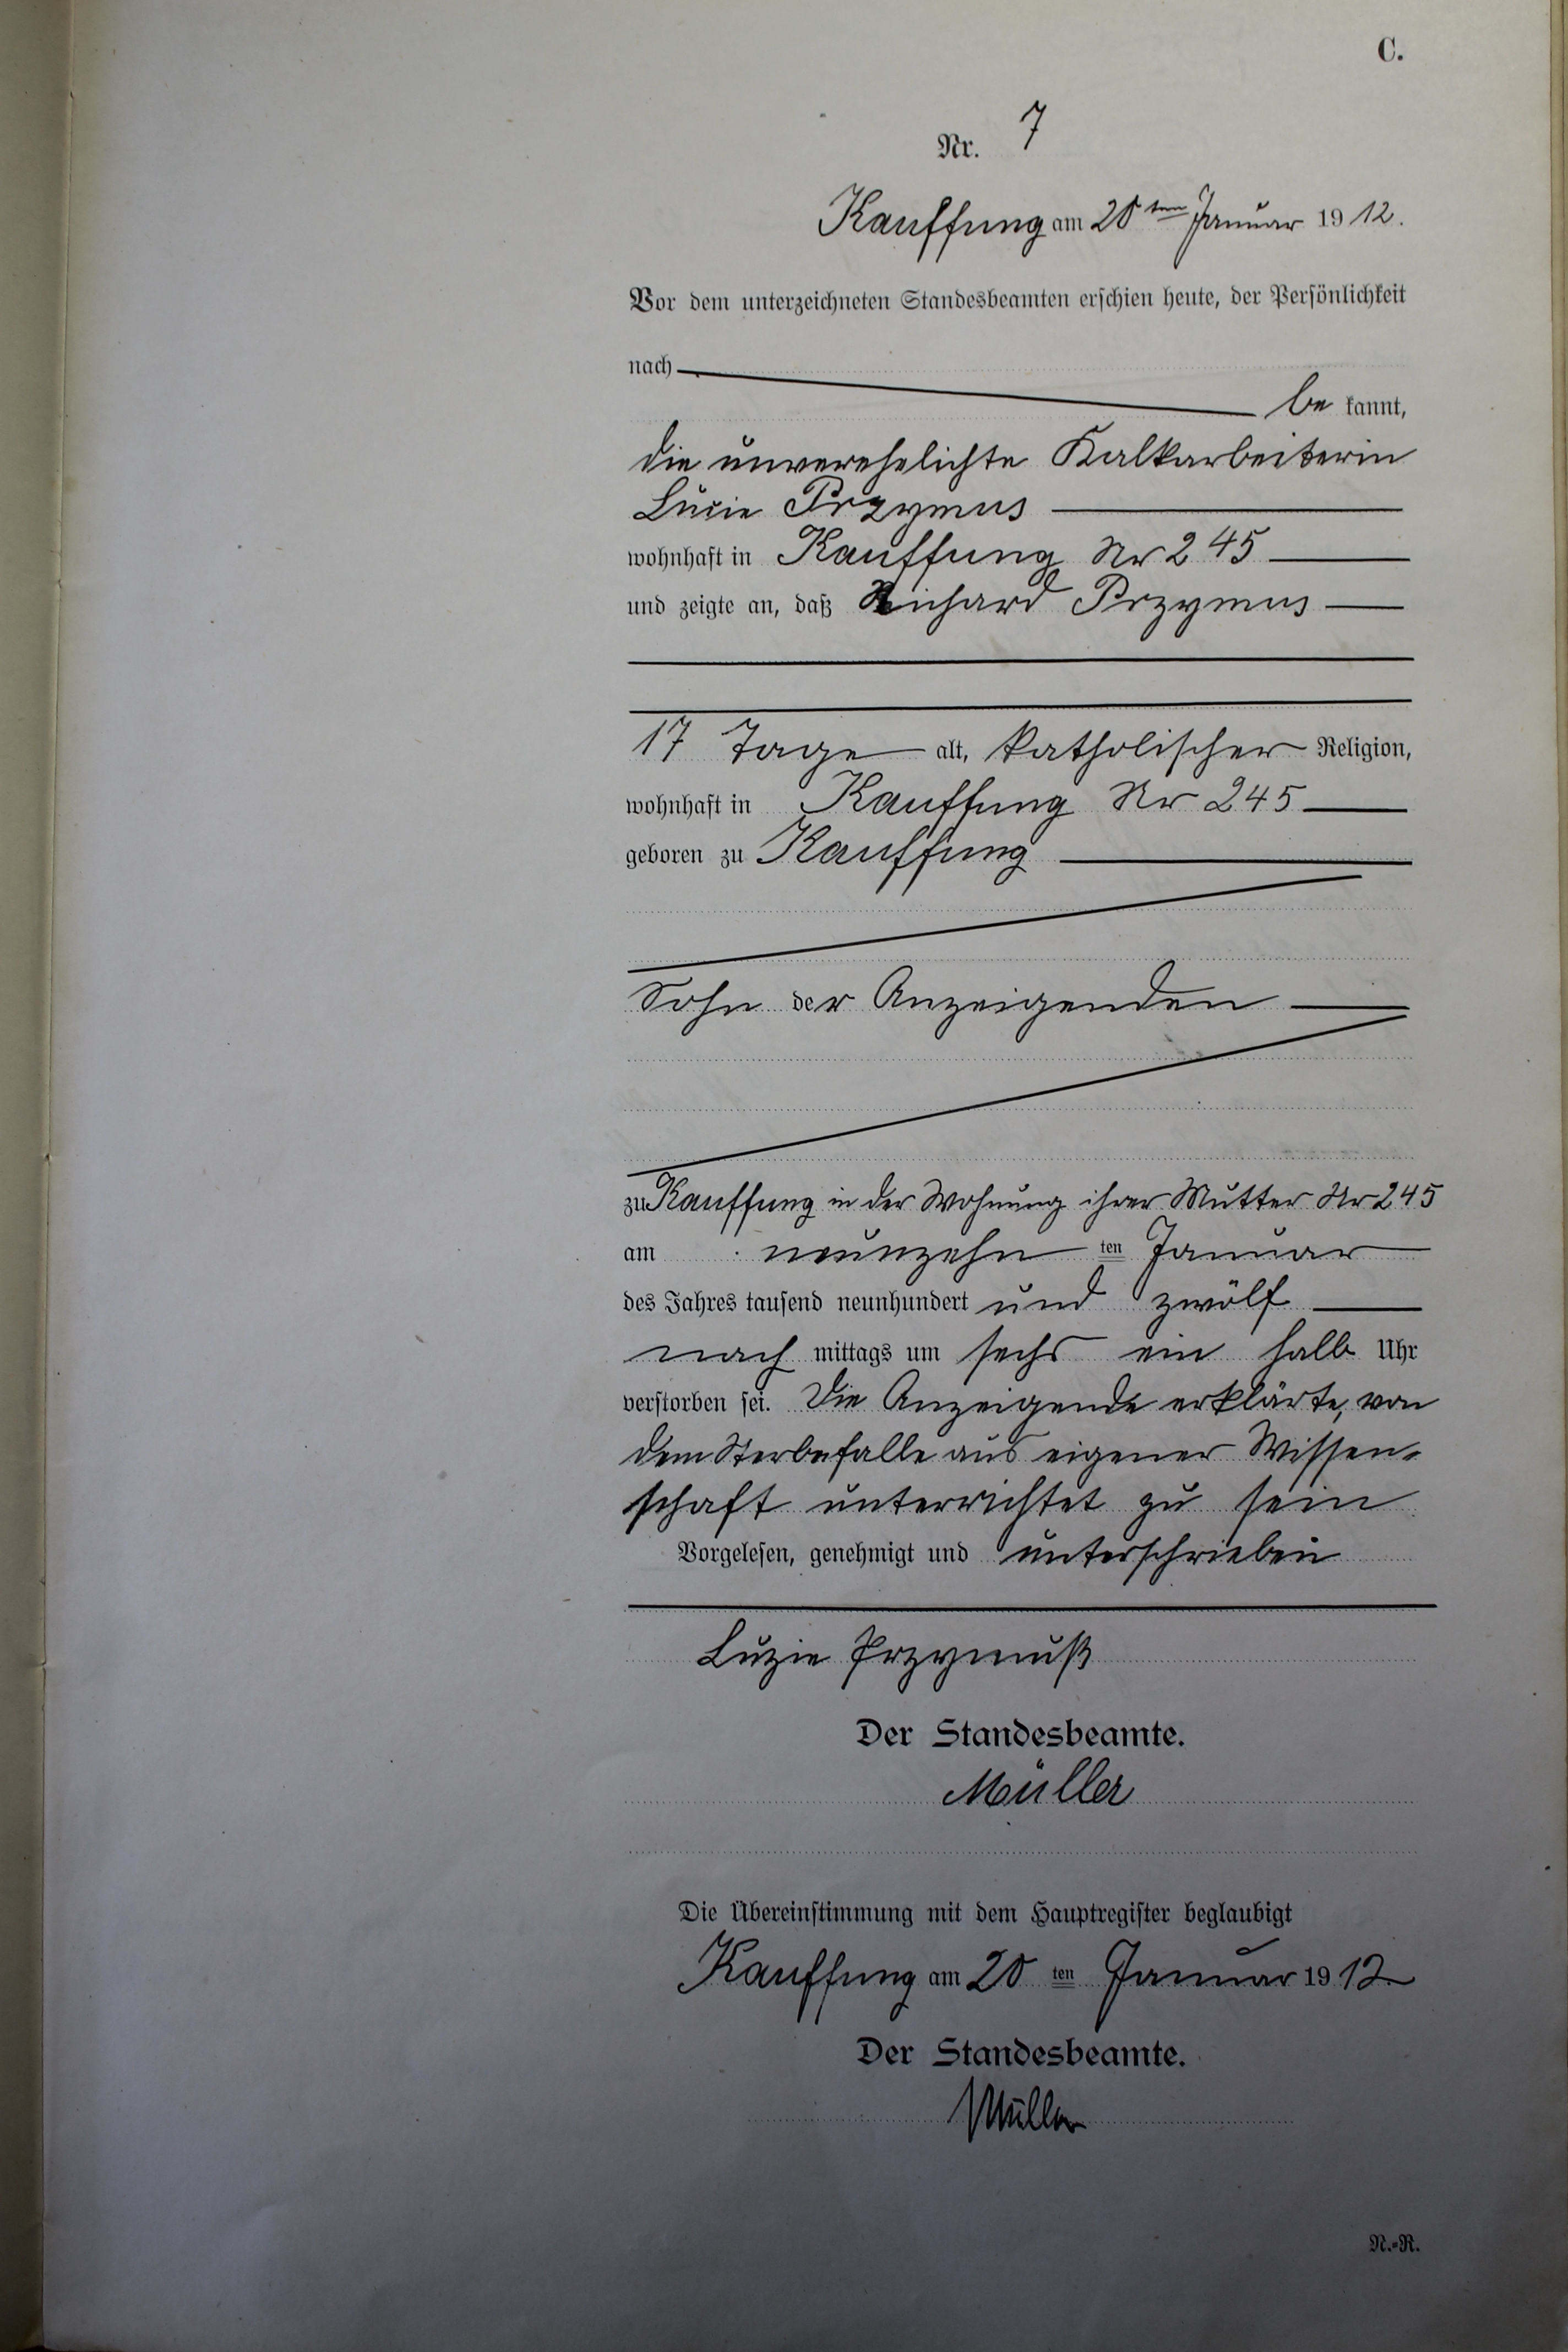 C.
Nr. 7
Kauffung am 20ten Januar 1912.
Vor dem unterzeichneten Standesbeamten erschien heute, der Persönlichkeit
nach
be kannt,
die unverehelichte Kalkarbeiterin
Lucie Przymus
wohnhaft in Kauffung Nr 245
und zeigte an, daß Richard Przymus
17 Tage alt, katholischer Religion,
wohnhaft in Kauffung Nr 245
geboren zu Kauffung
Sohn der Anzeigenden
zu Kauffung in der Wohnung ihrer Mutter Nr 245
am neunzehn ten Januar
des Jahres tausend neunhundert und zwölf
nach mittags um sechs ein halb Uhr
verstorben sei. Die Anzeigende erklärte, von
dem Sterbefalle aus eigener Wissen-
schaft unterrichtet zu sein
Vorgelesen, genehmigt und unterschrieben
Luzie Przymuß
Der Standesbeamte.
Müller
Die Übereinstimmung mit dem Hauptregister beglaubigt
Kauffung am 20 ten Januar 1912
Der Standesbeamte.
Müller
N.-R.